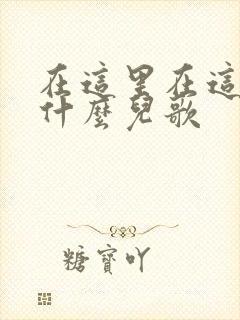 在這里在這
什麼兒歌
糖寶吖